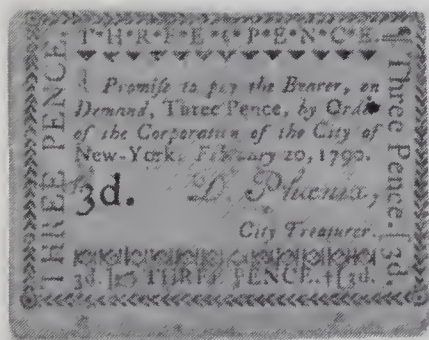 T*H*R*E*E*P*E*N*C*E.
I Promise to pay the Bearer, on
Demand, Three Pence, by Order
of the Corporation of the City of
New-York, February 20, 1790.
3d. D. Phœnix,
City Treasurer.
3d.] THREE PENCE. †[3d.
THREE PENCE.
Three Pence. [3d.